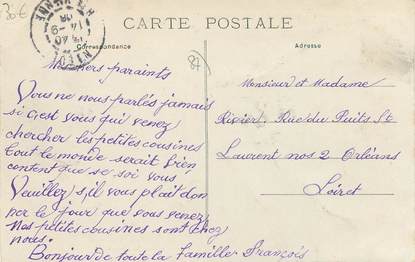 30€
CARTE POSTALE
Correspondance
Adresse
87
Mes chers paraints
Vous ne nous parlés jamais
si c'est vous qui venez
chercher les petites cousines
tout le monde serait bien
content que se soi vous
Veuillez s,il vous plait don
ner le jour que vous venez,
Nos petites cousines sont chez
nous.
Bonjour de toute la famille François
Monsieur et Madame
Rivier, Rue du Puits St
Laurent nos 2 Orléans
Loiret